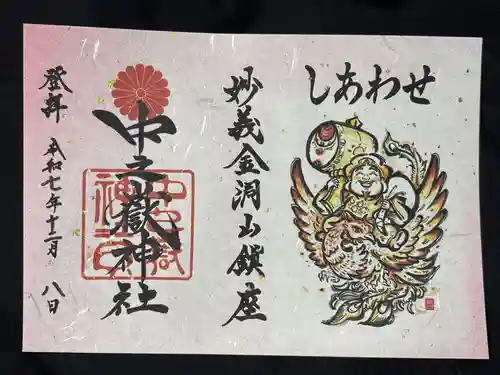 しあわせ
妙義金洞山鎮座
中之嶽神社
登拝 令和七年十二月 八日